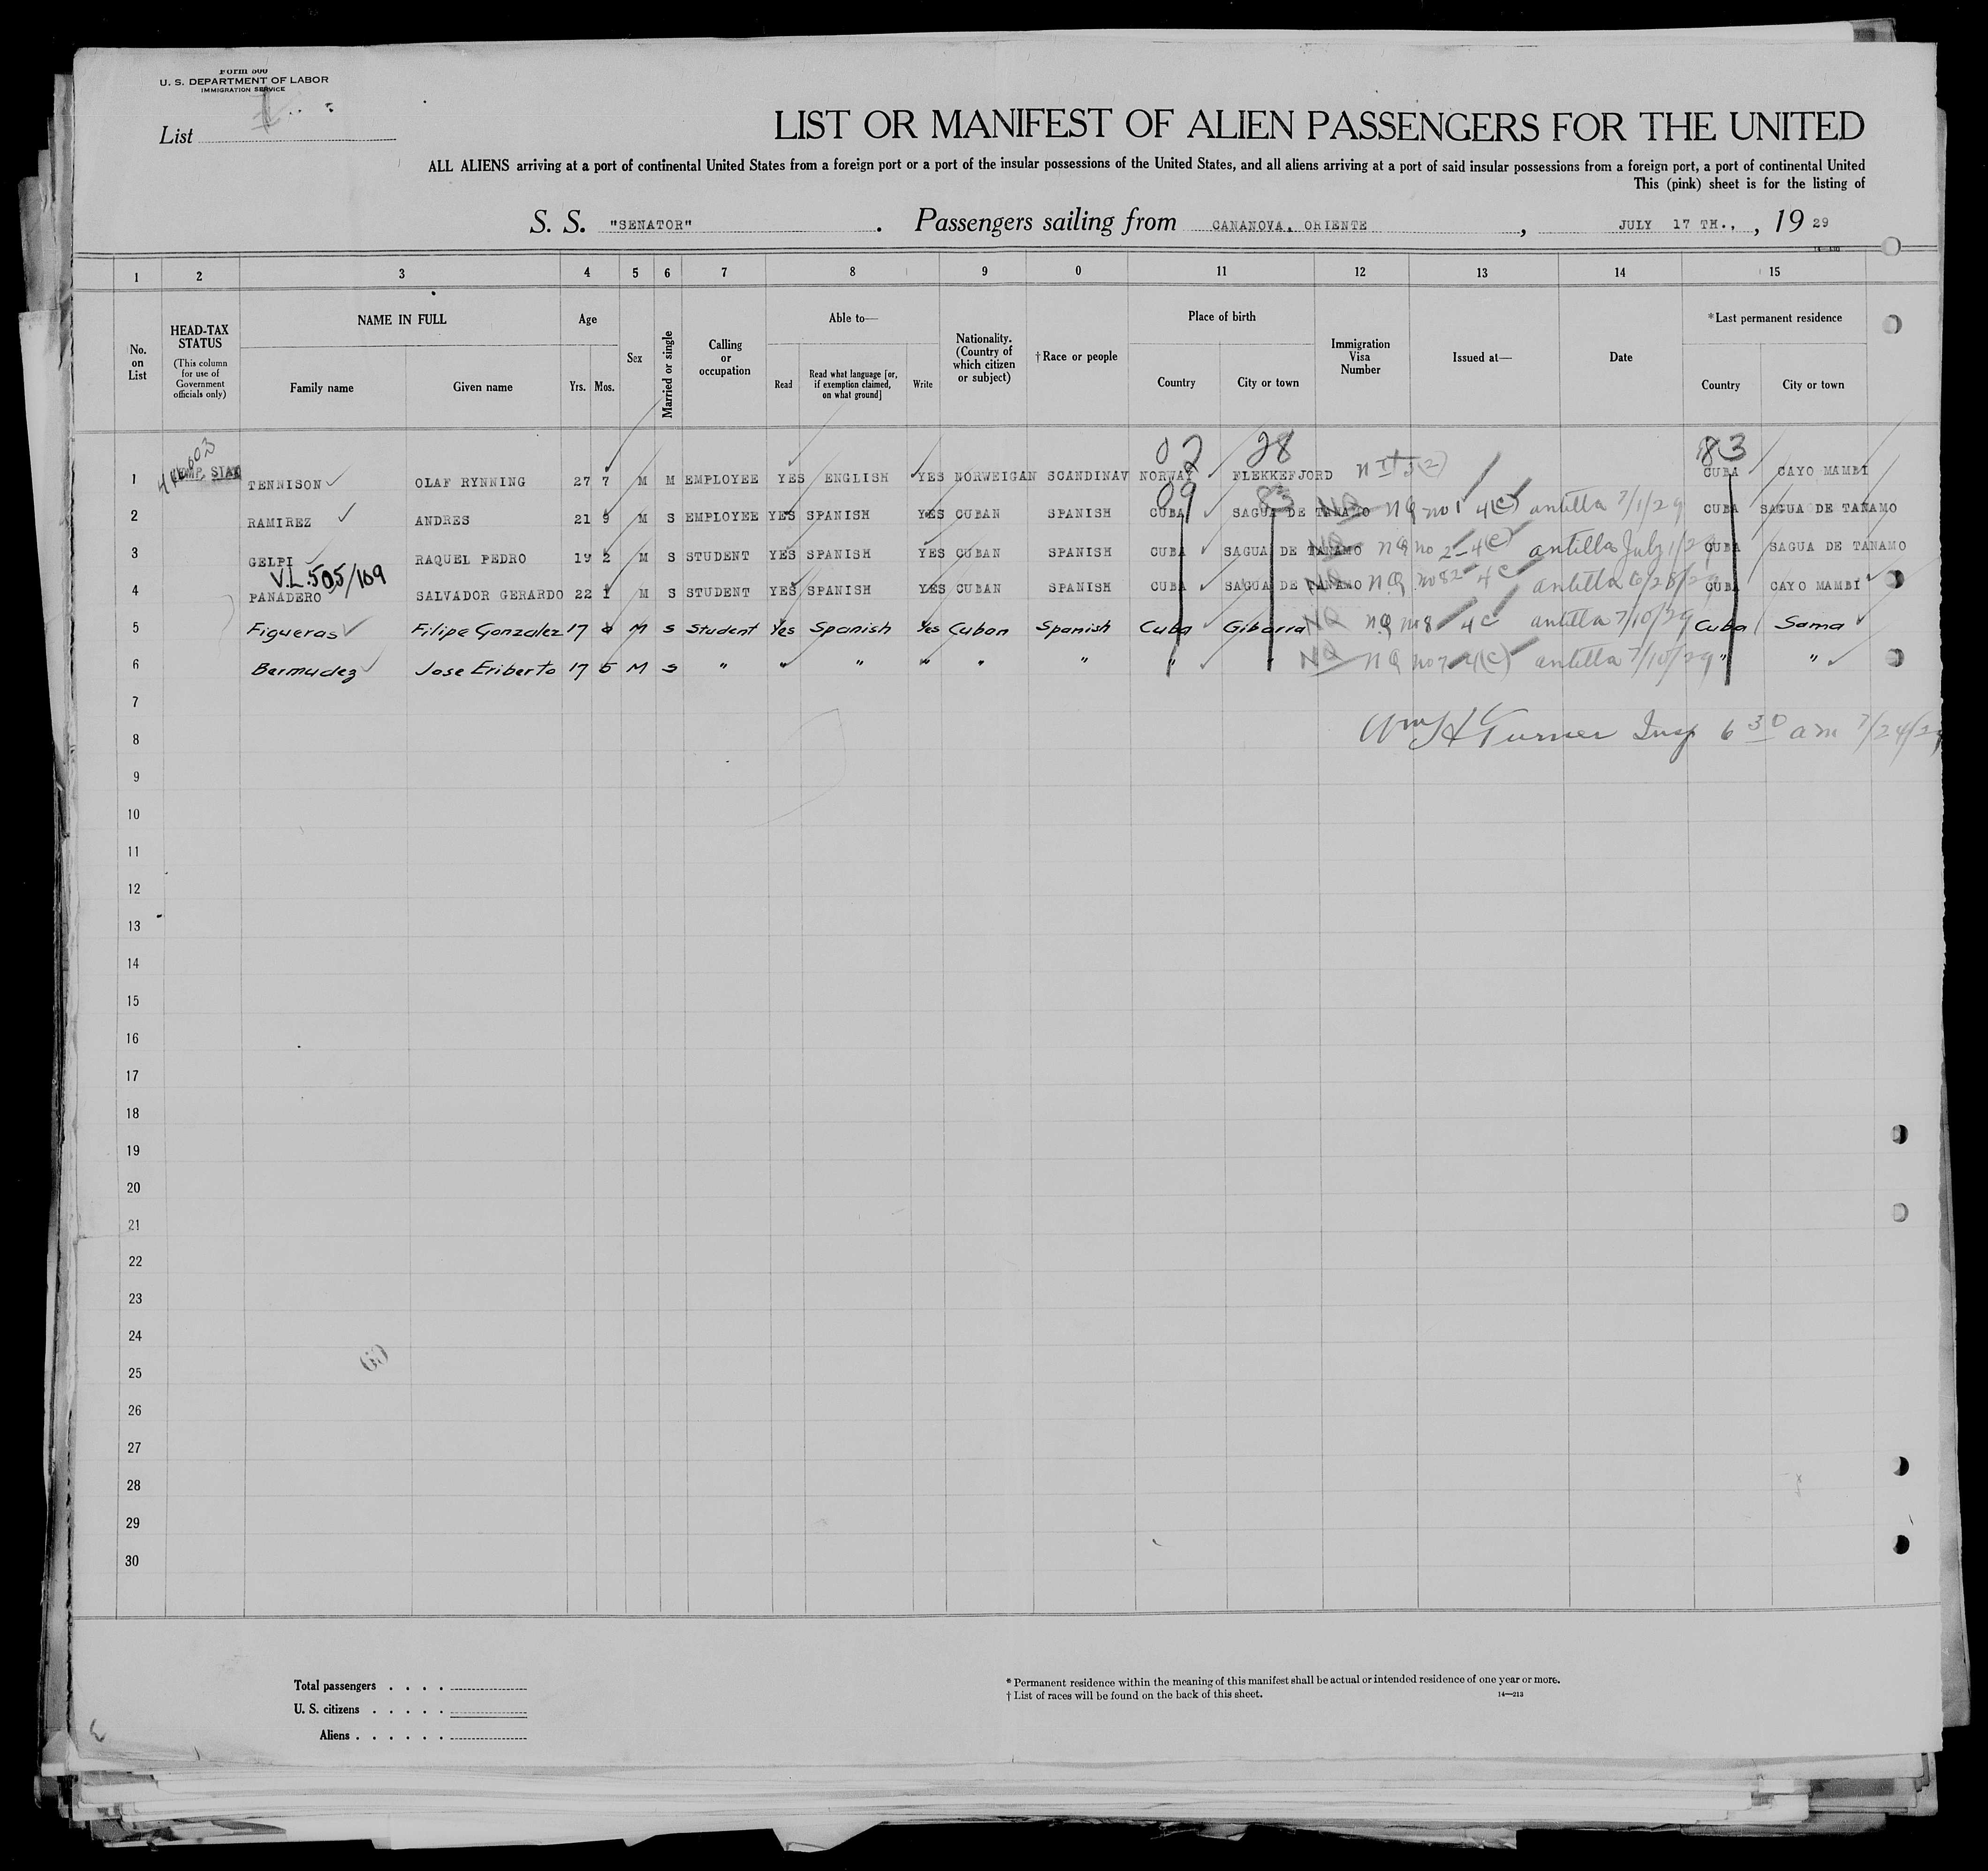 Form 500
U. S. DEPARTMENT OF LABOR
IMMIGRATION SERVICE
List
LIST OR MANIFEST OF ALIEN PASSENGERS FOR THE UNITED
ALL ALIENS arriving at a port of continental United States from a foreign port or a port of the insular possessions of the United States, and all aliens arriving at a port of said insular possessions from a foreign port, a port of continental United
This (pink) sheet is for the listing of
S. S. "SENATOR" . Passengers sailing from CANANOVA, ORIENTE , JULY 17 TH., , 19 29
1 2 3 4 5 6 7 8 9 0 11 12 13 14 15
No. on List
HEAD-TAX STATUS
(This column for use of Government officials only)
NAME IN FULL
Family name Given name
Age
Yrs. Mos.
Sex
Married or single
Calling or occupation
Able to—
Read
Read what language [or, if exemption claimed, on what ground]
Write
Nationality. (Country of which citizen or subject)
† Race or people
Place of birth
Country City or town
Immigration Visa Number
Issued at—
Date
*Last permanent residence
Country City or town
02 28 83
1 TENNISON OLAF RYNNING 27 7 M M EMPLOYEE YES ENGLISH YES NORWEIGAN SCANDINAV NORWAY FLEKKEFJORD CUBA CAYO MAMBI
09 83
2 RAMIREZ ANDRES 21 9 M S EMPLOYEE YES SPANISH YES CUBAN SPANISH CUBA SAGUA DE TANAMO NQ NQ no 1 4(c) antilla 7/1/29 CUBA SAGUA DE TANAMO
3 GELPI RAQUEL PEDRO 19 2 M S STUDENT YES SPANISH YES CUBAN SPANISH CUBA SAGUA DE TANAMO NQ NQ no 2 4(c) antilla July 1/29 CUBA SAGUA DE TANAMO
V.L. 505/169
4 PANADERO SALVADOR GERARDO 22 1 M S STUDENT YES SPANISH YES CUBAN SPANISH CUBA SAGUA DE TANAMO NQ no 82 4 c antilla 6/28/29 CUBA CAYO MAMBI
5 Figueras Filipe Gonzalez 17 M S Student Yes Spanish Yes Cuban Spanish Cuba Gibarra NQ NQ no 8 4 c antilla 7/10/29 Cuba Sama
6 Bermudez Jose Eriberto 17 5 M S " " " " " " " " NQ NQ no 7 4(c) antilla 7/10/29 " "
7
Wm H Turner Insp 6 30 am 7/24/29
8
9
10
11
12
13
14
15
16
17
18
19
20
21
22
23
24
60
25
26
27
28
29
30
Total passengers . . . .
U. S. citizens . . . . .
Aliens . . . . . .
* Permanent residence within the meaning of this manifest shall be actual or intended residence of one year or more.
† List of races will be found on the back of this sheet. 14—213